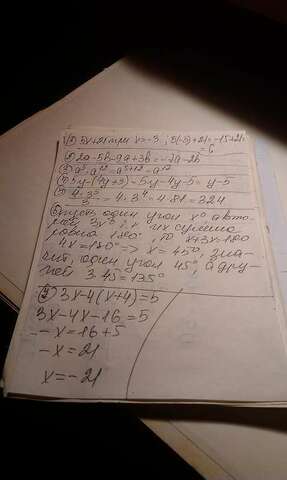 ① 5x+21 при x=-3; 5(-3)+21=-15+21=
=6
② 2a-5b-9a+3b=-7a-2b
③ a⁵·a¹²=a⁵⁺¹²=a¹⁷
④ 5y-(4y+5)=5y-4y-5=y-5
= 4·3⁴=4·81=324
⑥ пусть один угол x° а вто-
рой 3x°; их сумма
равна 180°, то x+3x=180
4x=180°=> x=45°, зна-
чит, один угол 45°, а дру-
гой 3·45=135°
⑦ 3x-4(x+4)=5
3x-4x-16=5
-x=16+5
-x=21
x=-21